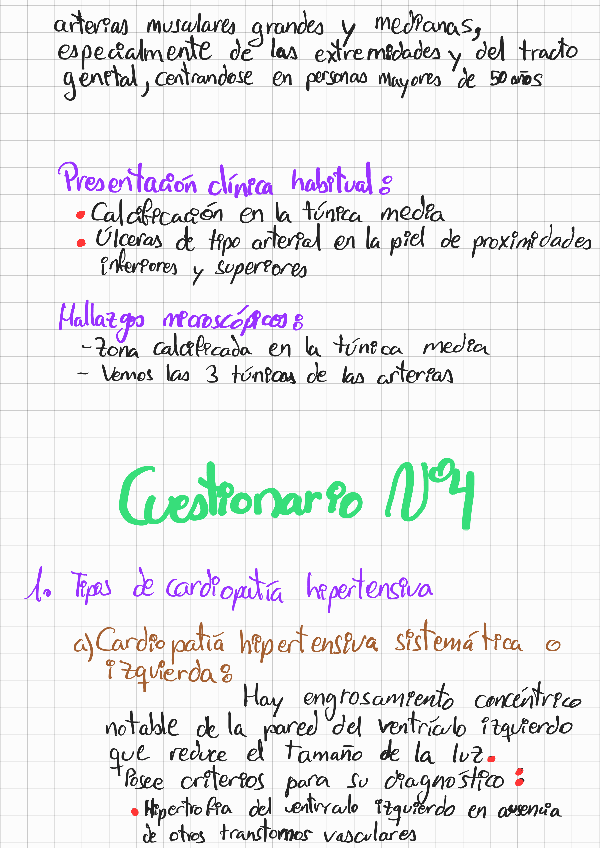 arterias musculares grandes y medianas,
especialmente de las extremidades y del tracto
genital, centrandose en personas mayores de 50 años
Presentación clínica habitual:
• Calcificación en la túnica media
• Úlceras de tipo arterial en la piel de proximidades
inferiores y superiores
Hallazgos microscópicos:
- Zona calcificada en la túnica media
- Vemos las 3 túnicas de las arterias
Cuestionario Nº4
1. Tipos de cardiopatía hipertensiva
a) Cardiopatía hipertensiva sistemática o
izquierda:
Hay engrosamiento concéntrico
notable de la pared del ventrículo izquierdo
que reduce el tamaño de la luz.
+Posee criterios para su diagnóstico:
• Hipertrofia del ventrículo izquierdo en ausencia
de otros transtornos vasculares